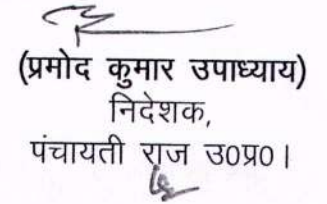 (प्रमोद कुमार उपाध्याय)
निदेशक,
पंचायती राज उ०प्र०।